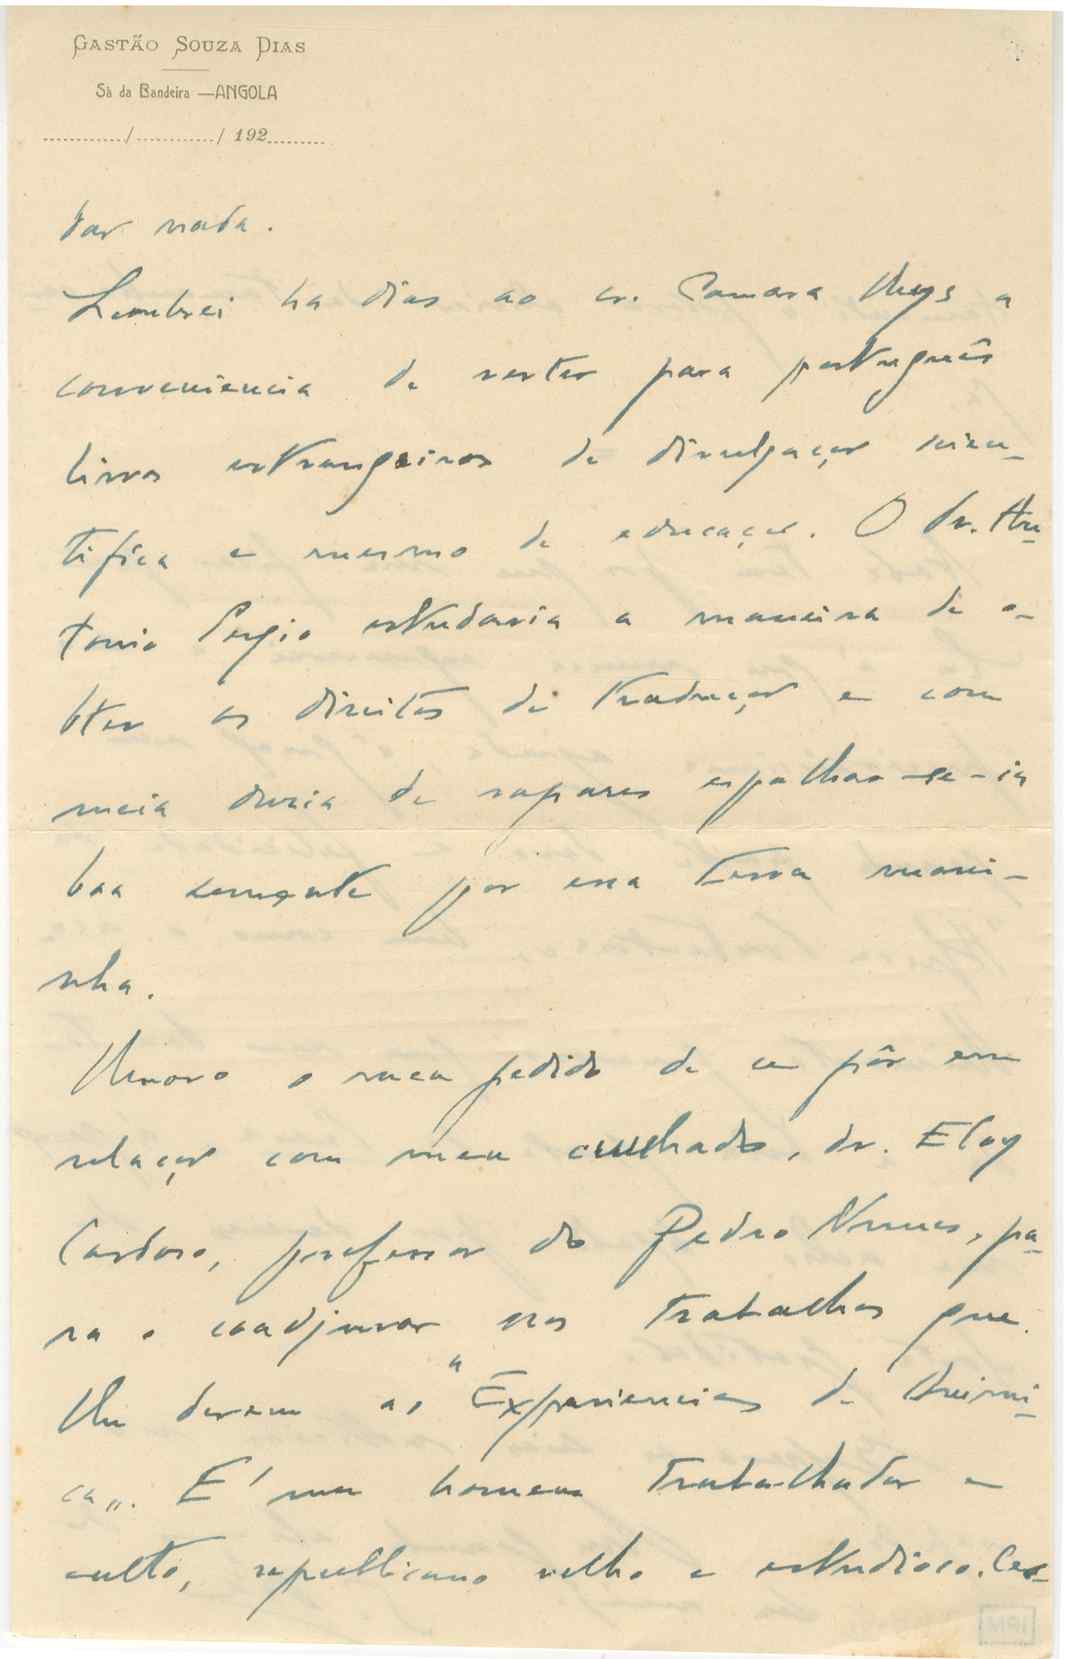 GASTÃO SOUZA DIAS
Sá da Bandeira — ANGOLA
............/............/ 192.........
dar nada.
Lembrei ha dias ao sr. Camara Reys a
conveniencia de verter para português
livros estrangeiros de divulgação scien-
tifica e mesmo de educação. O dr. An-
tonio Sergio estudaria a maneira de o-
bter os direitos de tradução e com
meia duzia de rapazes espalhar-se-ia
boa semente por essa terra mani-
nha.
Renovo o meu pedido de se pôr em
relação com meu cunhado, dr. Eloy
Cardoso, professor do Pedro Nunes, pa-
ra o coadjuvar nos trabalhos que
lhe derem as "Experiencias de Quimi-
ca". É um homem trabalhador e
culto, republicano velho e estudioso.
IPM